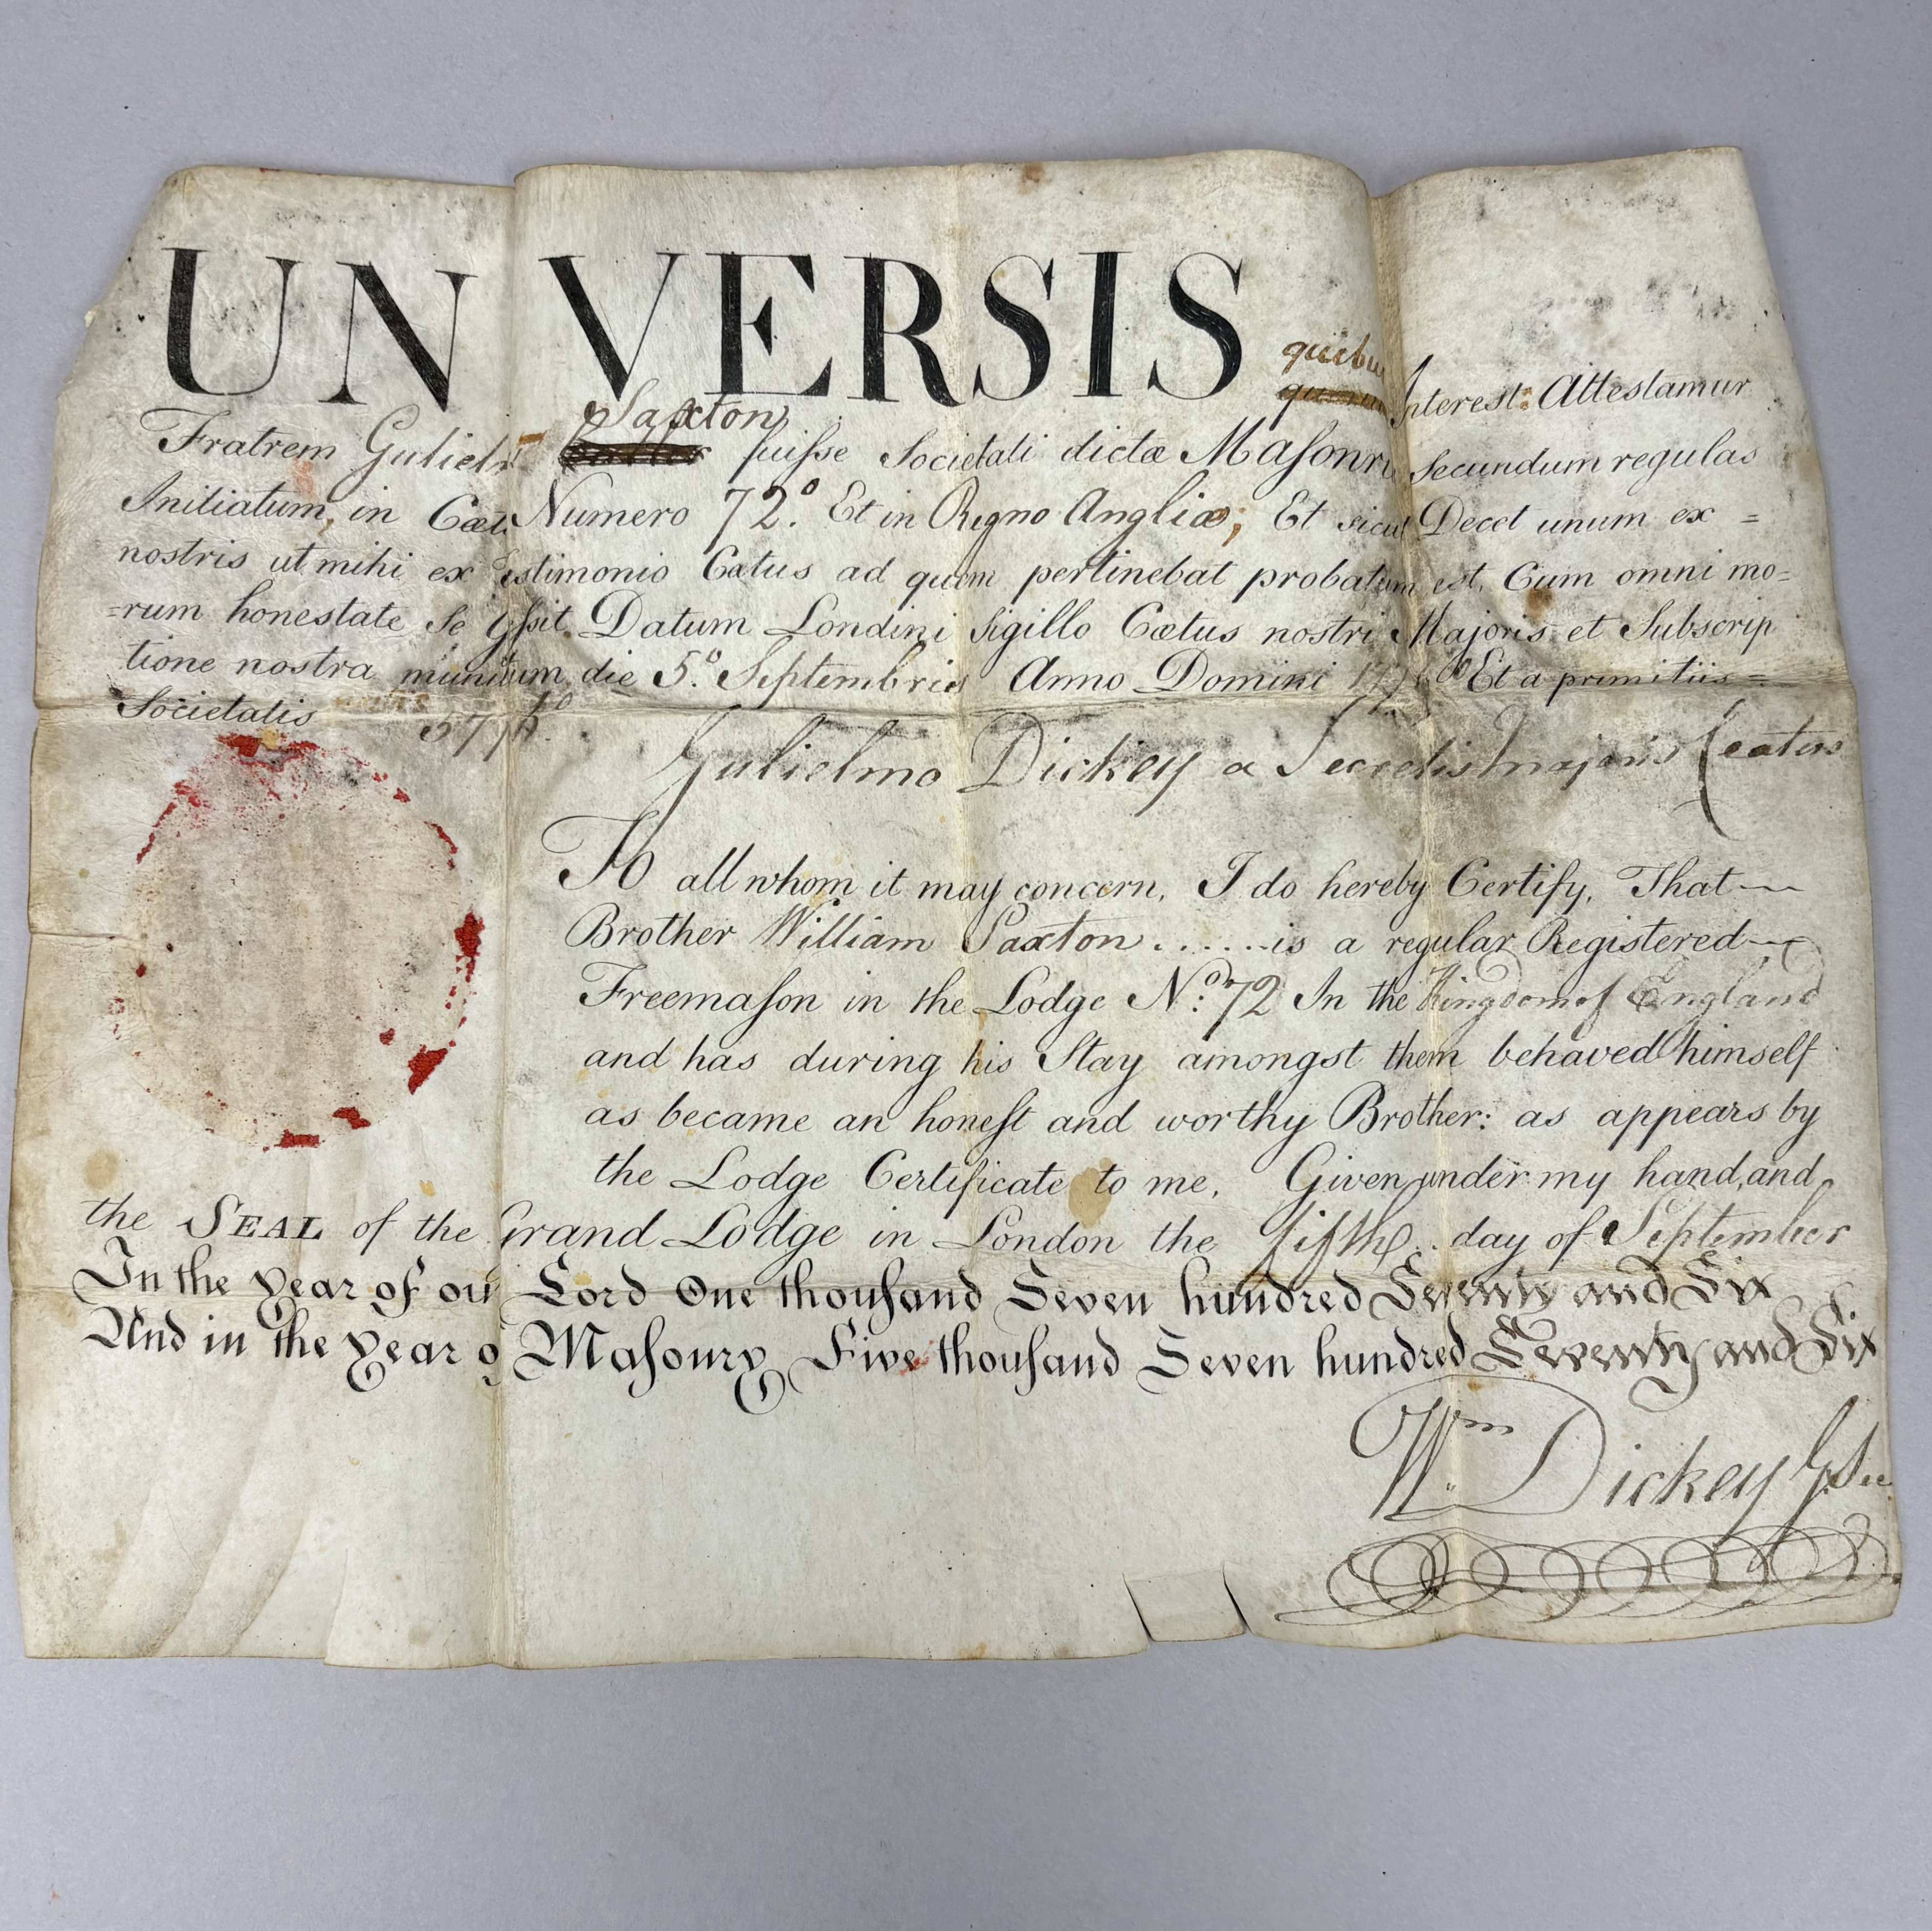 UN VERSIS quibu Interest: Attestamur
Saxton
Fratrem Gulielm fuiſse Societati dictæ Maſonr secundum regulas
Initiatum, in Cœt Numero 72.º Et in Regno Angliæ; Et sicut Decet unum ex =
nostris ut mihi ex testimonio Cœtus ad quem pertinebat probatum est, Cum omni mo=
=rum honestate se geſsit. Datum Londini sigillo Cœtus nostri Majoris et Subscrip
tione nostra munitum die 5.º Septembris Anno Domini 1776º Et a primitiis =
Societatis 5776º
Gulielmo Dickey a Secretis majoris Cœatus
To all whom it may concern, I do hereby Certify, That
Brother William Saxton ...... is a regular Registered
Freemaſon in the Lodge Nº: 72 In the Kingdom of England
and has during his Stay amongst them behaved himself
as became an honeſt and worthy Brother: as appears by
the Lodge Certificate to me, Given under my hand, and
the SEAL of the Grand Lodge in London the fifth day of September
In the Year of ou Lord One thouſand Seven hundred Seventy and Six
And in the Year o Maſonry Five thouſand Seven hundred Seventy and Six
Wm Dickey G. Sec